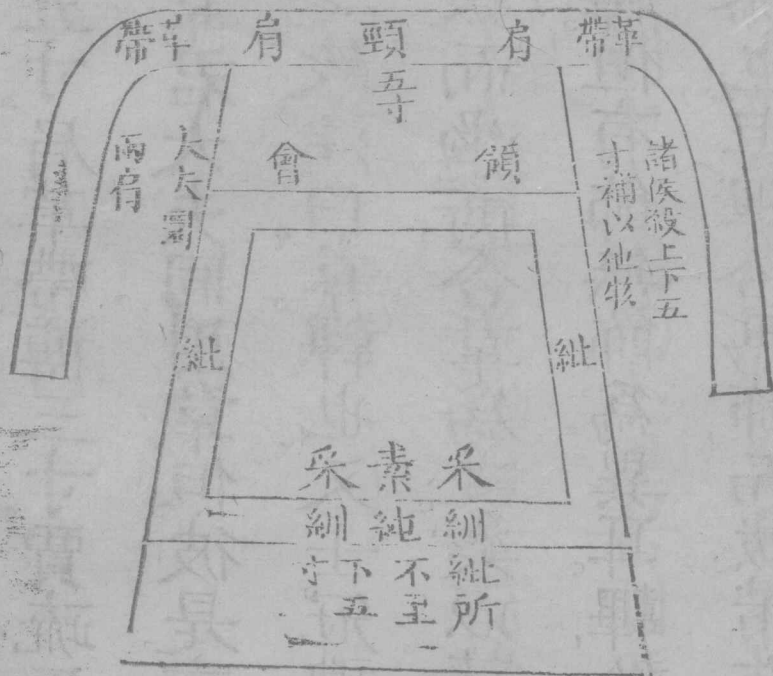 革帶
肩
頸五寸
肩
革帶
領會
諸侯殺上下五
寸補以他物
大夫
兩肩
紕
紕
采素采
紃純紃
紕所
不至
下五
寸